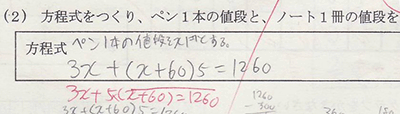 (2) 方程式をつくり、ペン1本の値段と、ノート1冊の値段を
方程式 ペン1本の値段をx円とする。
3x+(x+60)5=1260
3x+5(x+60)=1260
3x+(x+60)5=1260
1260
-300